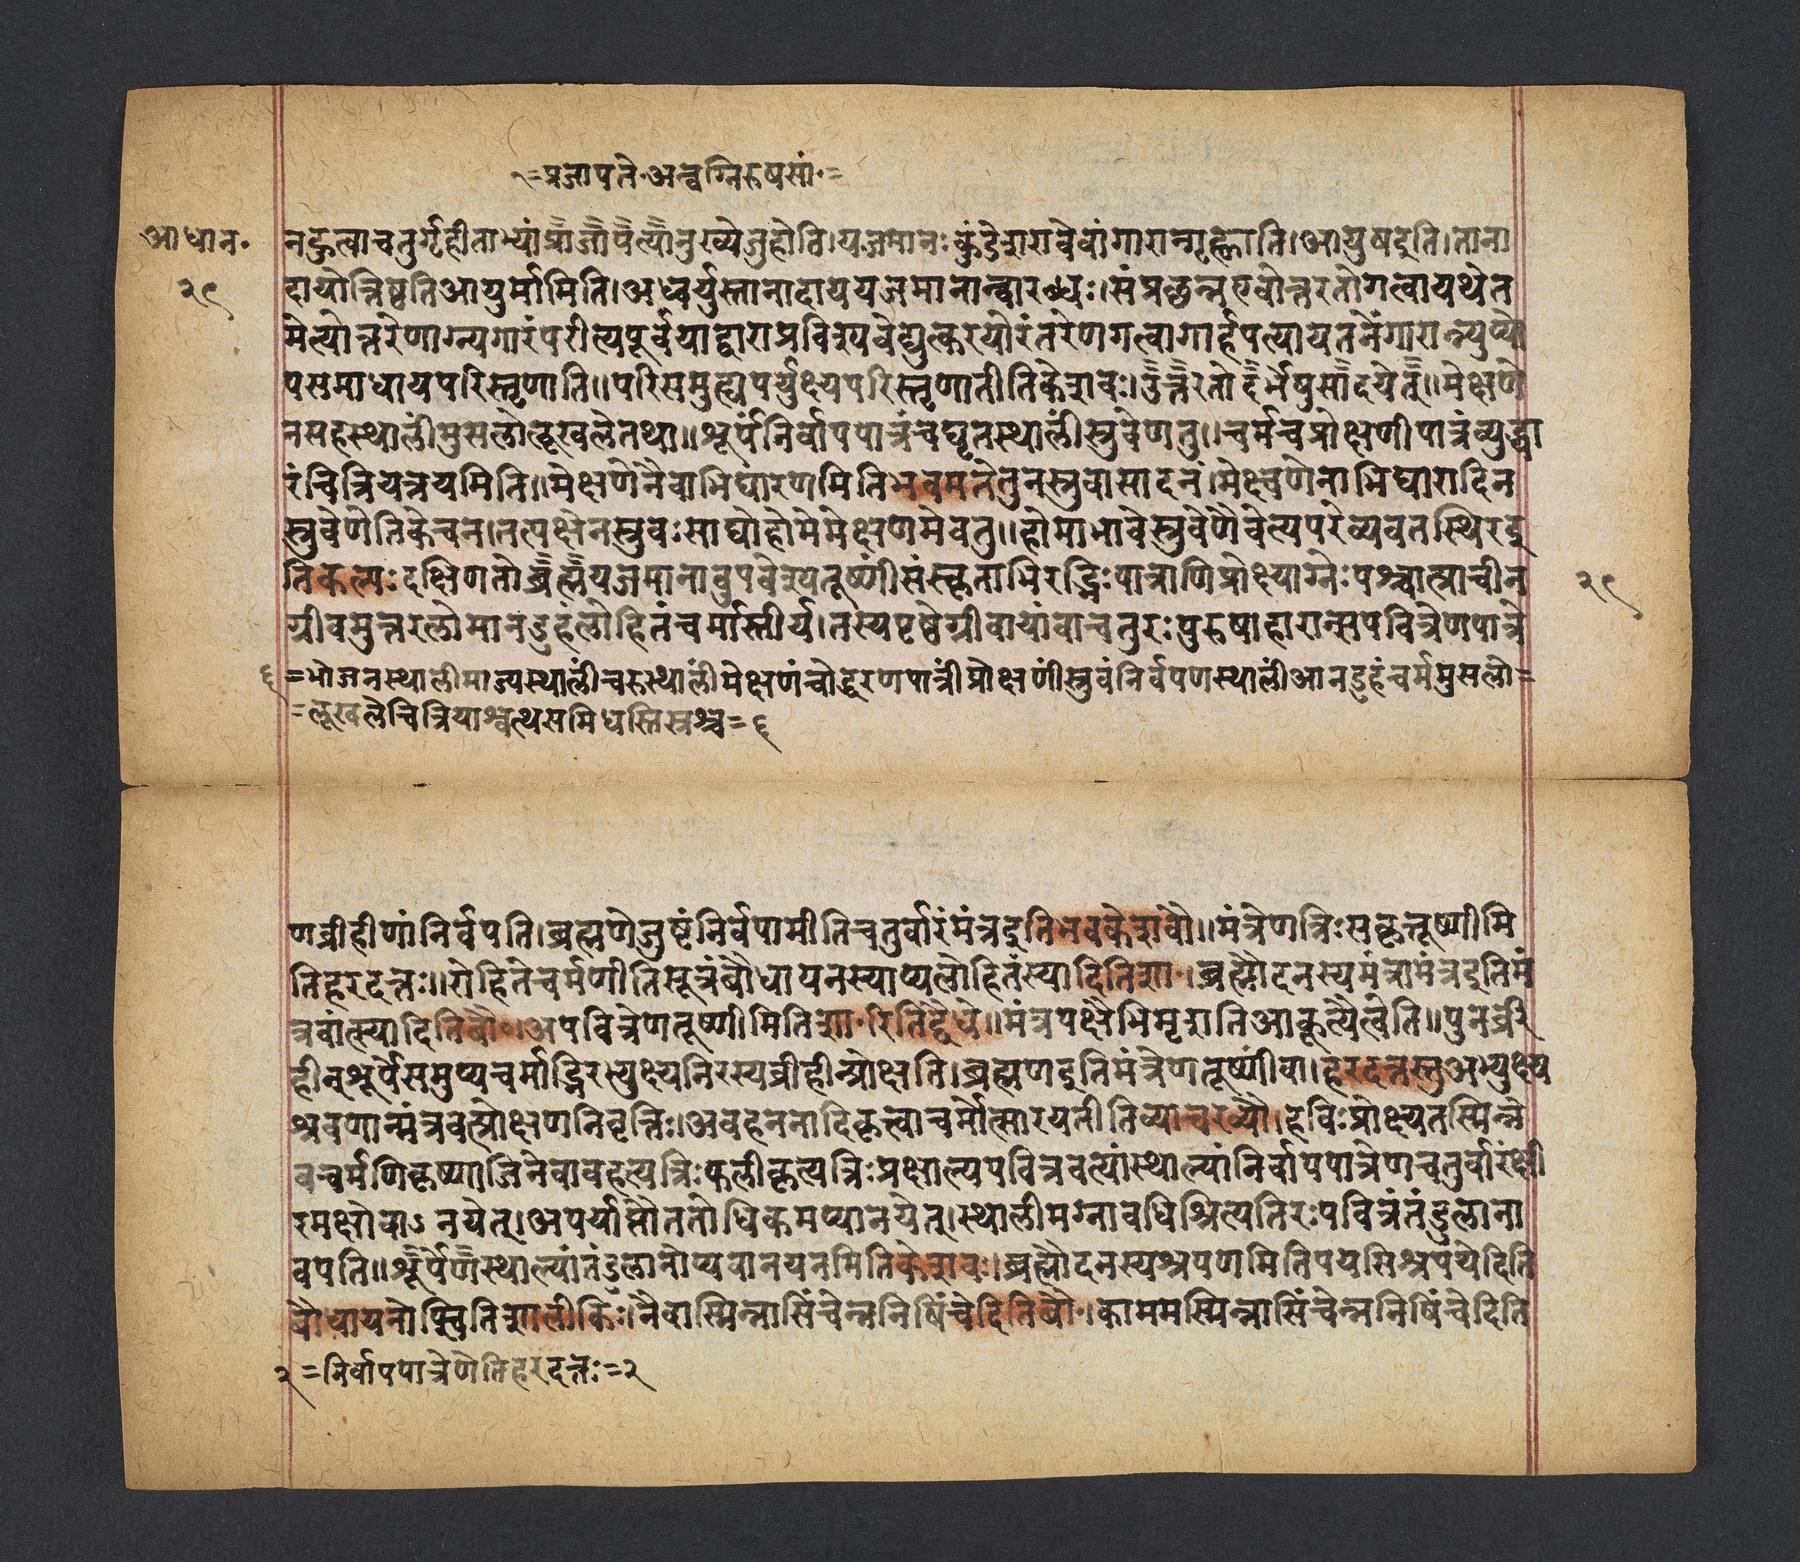 १=प्रजापते॰अन्वग्निरुषसां॰=
आधान॰
२९
नहुत्वाचतुर्गृहीताभ्यांप्राजापत्यानुख्येजुहोति।यजमानःकुंडेशरावेवांगारान्गृह्णाति।आयुषइति।ताना
दायोत्तिष्ठतिआयुर्मामिति।अध्वर्युस्तानादाययजमानान्वारब्धः।संप्रछन्नएवोत्तरतोगत्वायथेत
मेत्योत्तरेणाग्न्यगारंपरीत्यपूर्वयाद्वाराप्रविश्यवेद्युत्करयोरंतरेणगत्वागार्हपत्यायतनेंगारान्न्युप्यो
पसमाधायपरिस्तृणाति॥परिसमुह्यपर्युक्ष्यपरिस्तृणातीतिकेशवः।उत्तरतोदर्भेषुसादयेत्॥मेक्षणे
नसहस्थालींमुसलोलूखलेतथा॥शूर्पंनिर्वापपात्रंचघृतस्थालींस्रुवेणतु॥चर्मचप्रोक्षणीपात्रंव्युद्धा
रंचित्रियत्रयमिति॥मेक्षणेनैवाभिघारणमितिभवमतेतुनस्रुवासादनं।मेक्षणेनाभिघारादिन
स्रुवेणेतिकेचन।तत्पक्षेनस्रुवःसाद्योहोमेमेक्षणमेवतु॥होमाभावेस्रुवेणैवेत्यपरेव्यवतस्थिरइ
तिकल्पःदक्षिणतोब्रह्मयजमानावुपवेश्यतूष्णींसंस्कृताभिरद्भिःपात्राणिप्रोक्ष्याग्नेःपश्चात्प्राचीन
२९
ग्रीवमुत्तरलोमानडुहंलोहितंचर्मास्तीर्य।तस्यपृष्ठेग्रीवायांवाचतुरःपुरुषाहारान्सपवित्रेणपात्रे
६=भोजनस्थालीमाज्यस्थालींचरुस्थालींमेक्षणंचोद्धरणपात्रींप्रोक्षणींस्रुवंनिर्वपणस्थालींआनडुहंचर्ममुसलो=
=लूखलेचित्रियाश्वत्थसमिधस्तिस्रश्च=६
णव्रीहीणांनिर्वपति।ब्रह्मणेजुष्टंनिर्वपामीतिचतुर्वारंमंत्रइतिभवकेशवौ॥मंत्रेणत्रिःसकृत्तूष्णीमि
तिहरदत्तः॥रोहितेचर्मणीतिसूत्रंबौधायनस्याप्यलोहितंस्यादितिशा॰।ब्रह्मौदनस्यमंत्रामंत्रइतिमं
त्रवांत्स्यादितिबौ॰अपवित्रेणतूष्णीमितिशा॰रितिद्वैधे॥मंत्रपक्षेभिमृशतिआकूत्यैत्वेति॥पुनर्व्री
हीन्शूर्पेसमुप्यचर्माद्भिरभ्युक्ष्यनिरस्यव्रीहीन्प्रोक्षति।ब्रह्मणइतिमंत्रेणतूष्णींवा।हरदत्तस्तुअभ्युक्ष्य
श्रवणान्मंत्रवत्प्रोक्षणनिवृत्तिः।अवहननादिकृत्वाचर्मोत्सारयतीतिव्याचख्यौ।हविःप्रोक्ष्यतस्मिन्ने
वचर्मणिकृष्णाजिनेवावहत्यत्रिःफलीकृत्यत्रिःप्रक्षाल्यपवित्रवत्यांस्थाल्यांनिर्वापपात्रेणचतुर्वारंक्षी
रमक्षोवाऽनयेत्।अपर्याप्तौततोधिकमप्यानयेत्।स्थालीमग्नावधिश्रित्यतिरःपवित्रंतंडुलाना
वपति॥शूर्पेणस्थाल्यांतंडुलानोप्यवानयनमितिकेशवः।ब्रह्मौदनस्यश्रपणमितिपयसिश्रपयेदिति
बौधायनोप्स्वितिशालीकिः।नैवास्मिन्नासिंचेन्ननिषिंचेदितिबौ॰।काममस्मिन्नासिंचेन्ननिषिंचेदिति
२=निर्वापपात्रेणेतिहरदत्तः=२